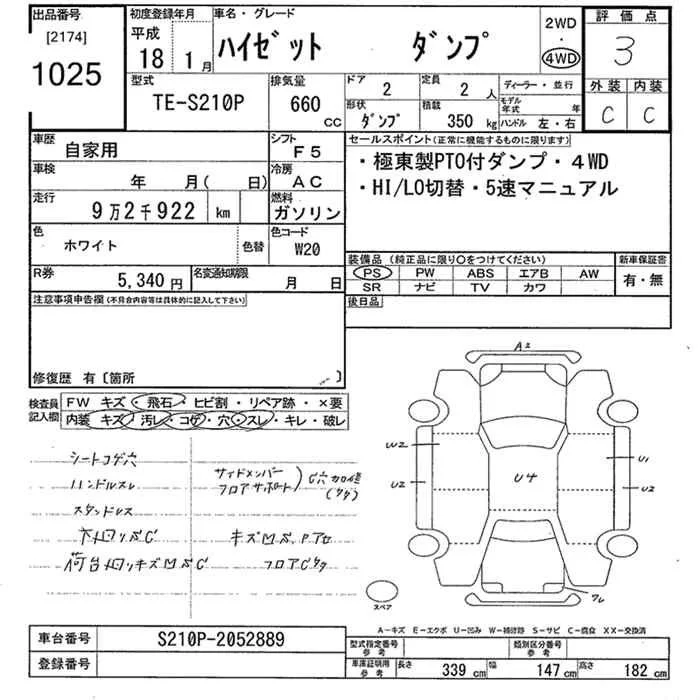 出品番号
[2174]
1025
初度登録年月
平成
18年 1月
車名・グレード
ハイゼット ダンプ
2WD
・
4WD
評価点
3
外装 内装
C C
型式
TE-S210P
排気量
660
CC
ドア
2
定員
2人
形状
ダンプ
積載
350 kg
ディーラー・並行
モデル年式 年
ハンドル 左・右
車歴
自家用
シフト
F5
車検
年 月( 日)
冷房
AC
走行
9万2千922 km
燃料
ガソリン
色
ホワイト
色替
色コード
W20
R券
5,340 円
名変通知期限
月 日
セールスポイント(正常に機能するものに限ります)
・極東製PTO付ダンプ・4WD
・HI/LO切替・5速マニュアル
装備品 (純正品に限り○をつけてください)
新車保証書
PS PW ABS エアB AW
SR ナビ TV カワ
有・無
後日品
注意事項申告欄(不具合内容等は具体的に記入して下さい)
修復歴 有〔箇所 〕
検査員記入欄
FW キズ・飛石・ヒビ割・リペア跡・×要
内装 キズ・汚レ・コゲ・穴・スレ・キレ・破レ
シートコゲ穴
ハンドルスレ
スタッドレス
サイドメンバー
フロアサポート
キズ凹S
フロアCタタ
A2
W2
U2
U4
U1
U2
スペア
A-キズ E-エクボ U-凹み W-補修跡 S-サビ C-腐食 XX-交換済
車台番号
S210P-2052889
登録番号
型式指定番号 参考
類別区分番号 参考
車庫証明用 参考
長さ 339 cm 幅 147 cm 高さ 182 cm